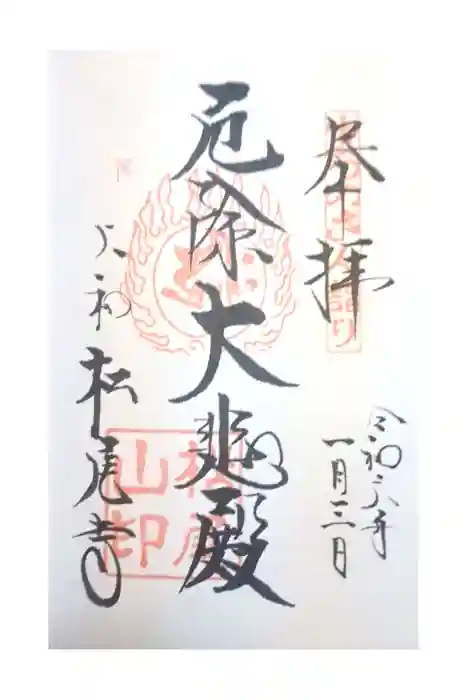 奉拝
令和六年
一月三日
厄除大悲殿
大和
松尾寺
松尾
山印